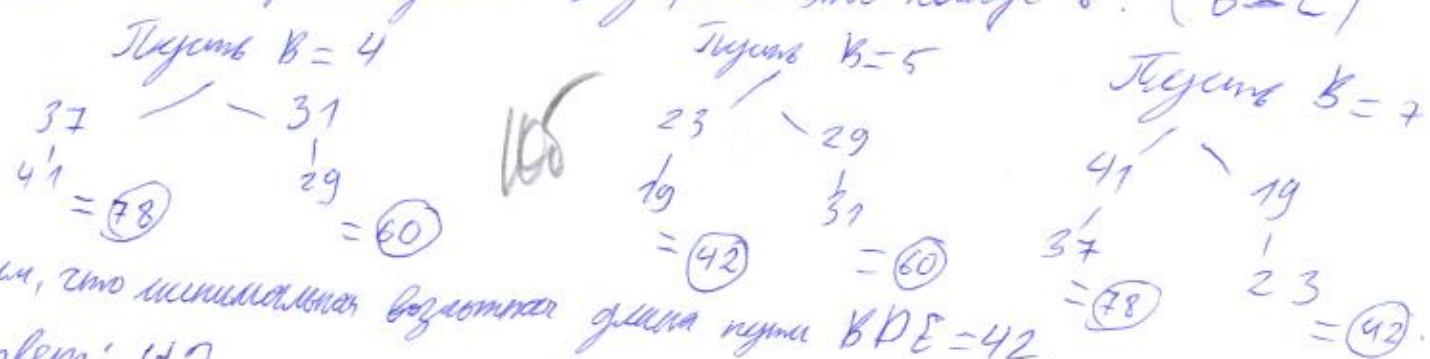 (B=2)
Пусть B = 4
37 31
41 29
= 78 = 60
10б
Пусть B = 5
23 29
19 31
= 42 = 60
Пусть B = 7
41 19
37 23
= 78 = 42.
что минимальная возможная длина пути BDE = 42